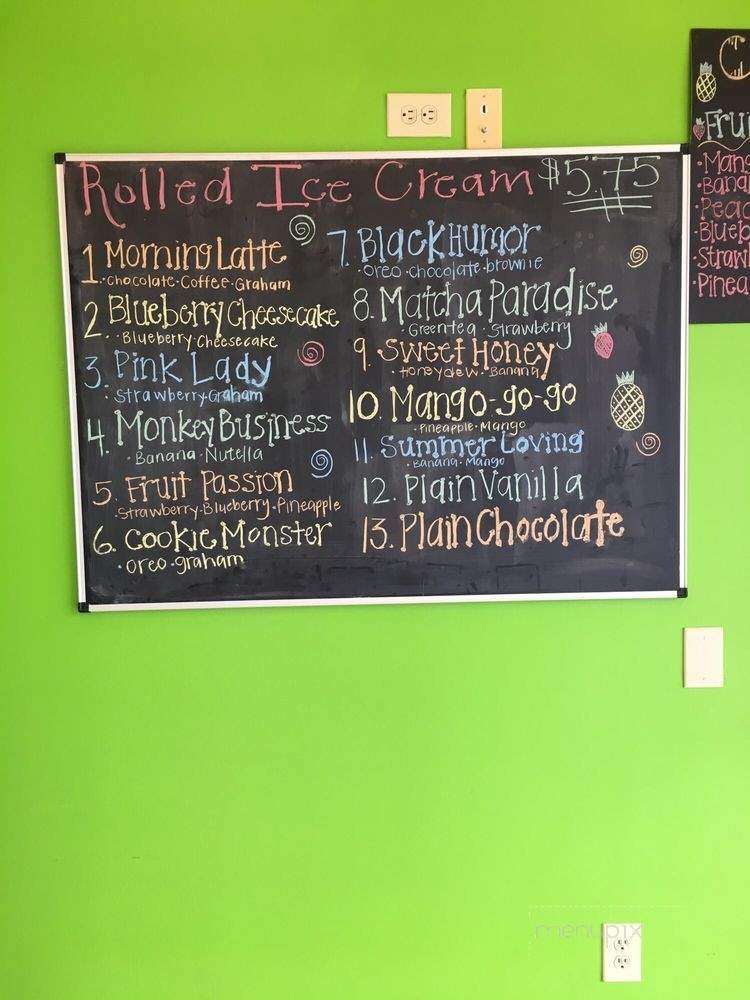 Rolled Ice Cream $5.75
1 Morning Latte
· Chocolate · Coffee · Graham
2 Blueberry Cheesecake
· Blueberry · Cheesecake
3. Pink Lady
· Strawberry · Graham
4. Monkey Business
· Banana · Nutella
5. Fruit Passion
· Strawberry · Blueberry · Pineapple
6. Cookie Monster
· oreo · graham
7. Black Humor
· Oreo · chocolate · brownie
8. Matcha Paradise
· Green tea · Strawberry
9. Sweet Honey
· Honeydew · Banana
10. Mango-go-go
· Pineapple · Mango
11. Summer Loving
· Banana · Mango
12. Plain Vanilla
13. Plain Chocolate
menupix